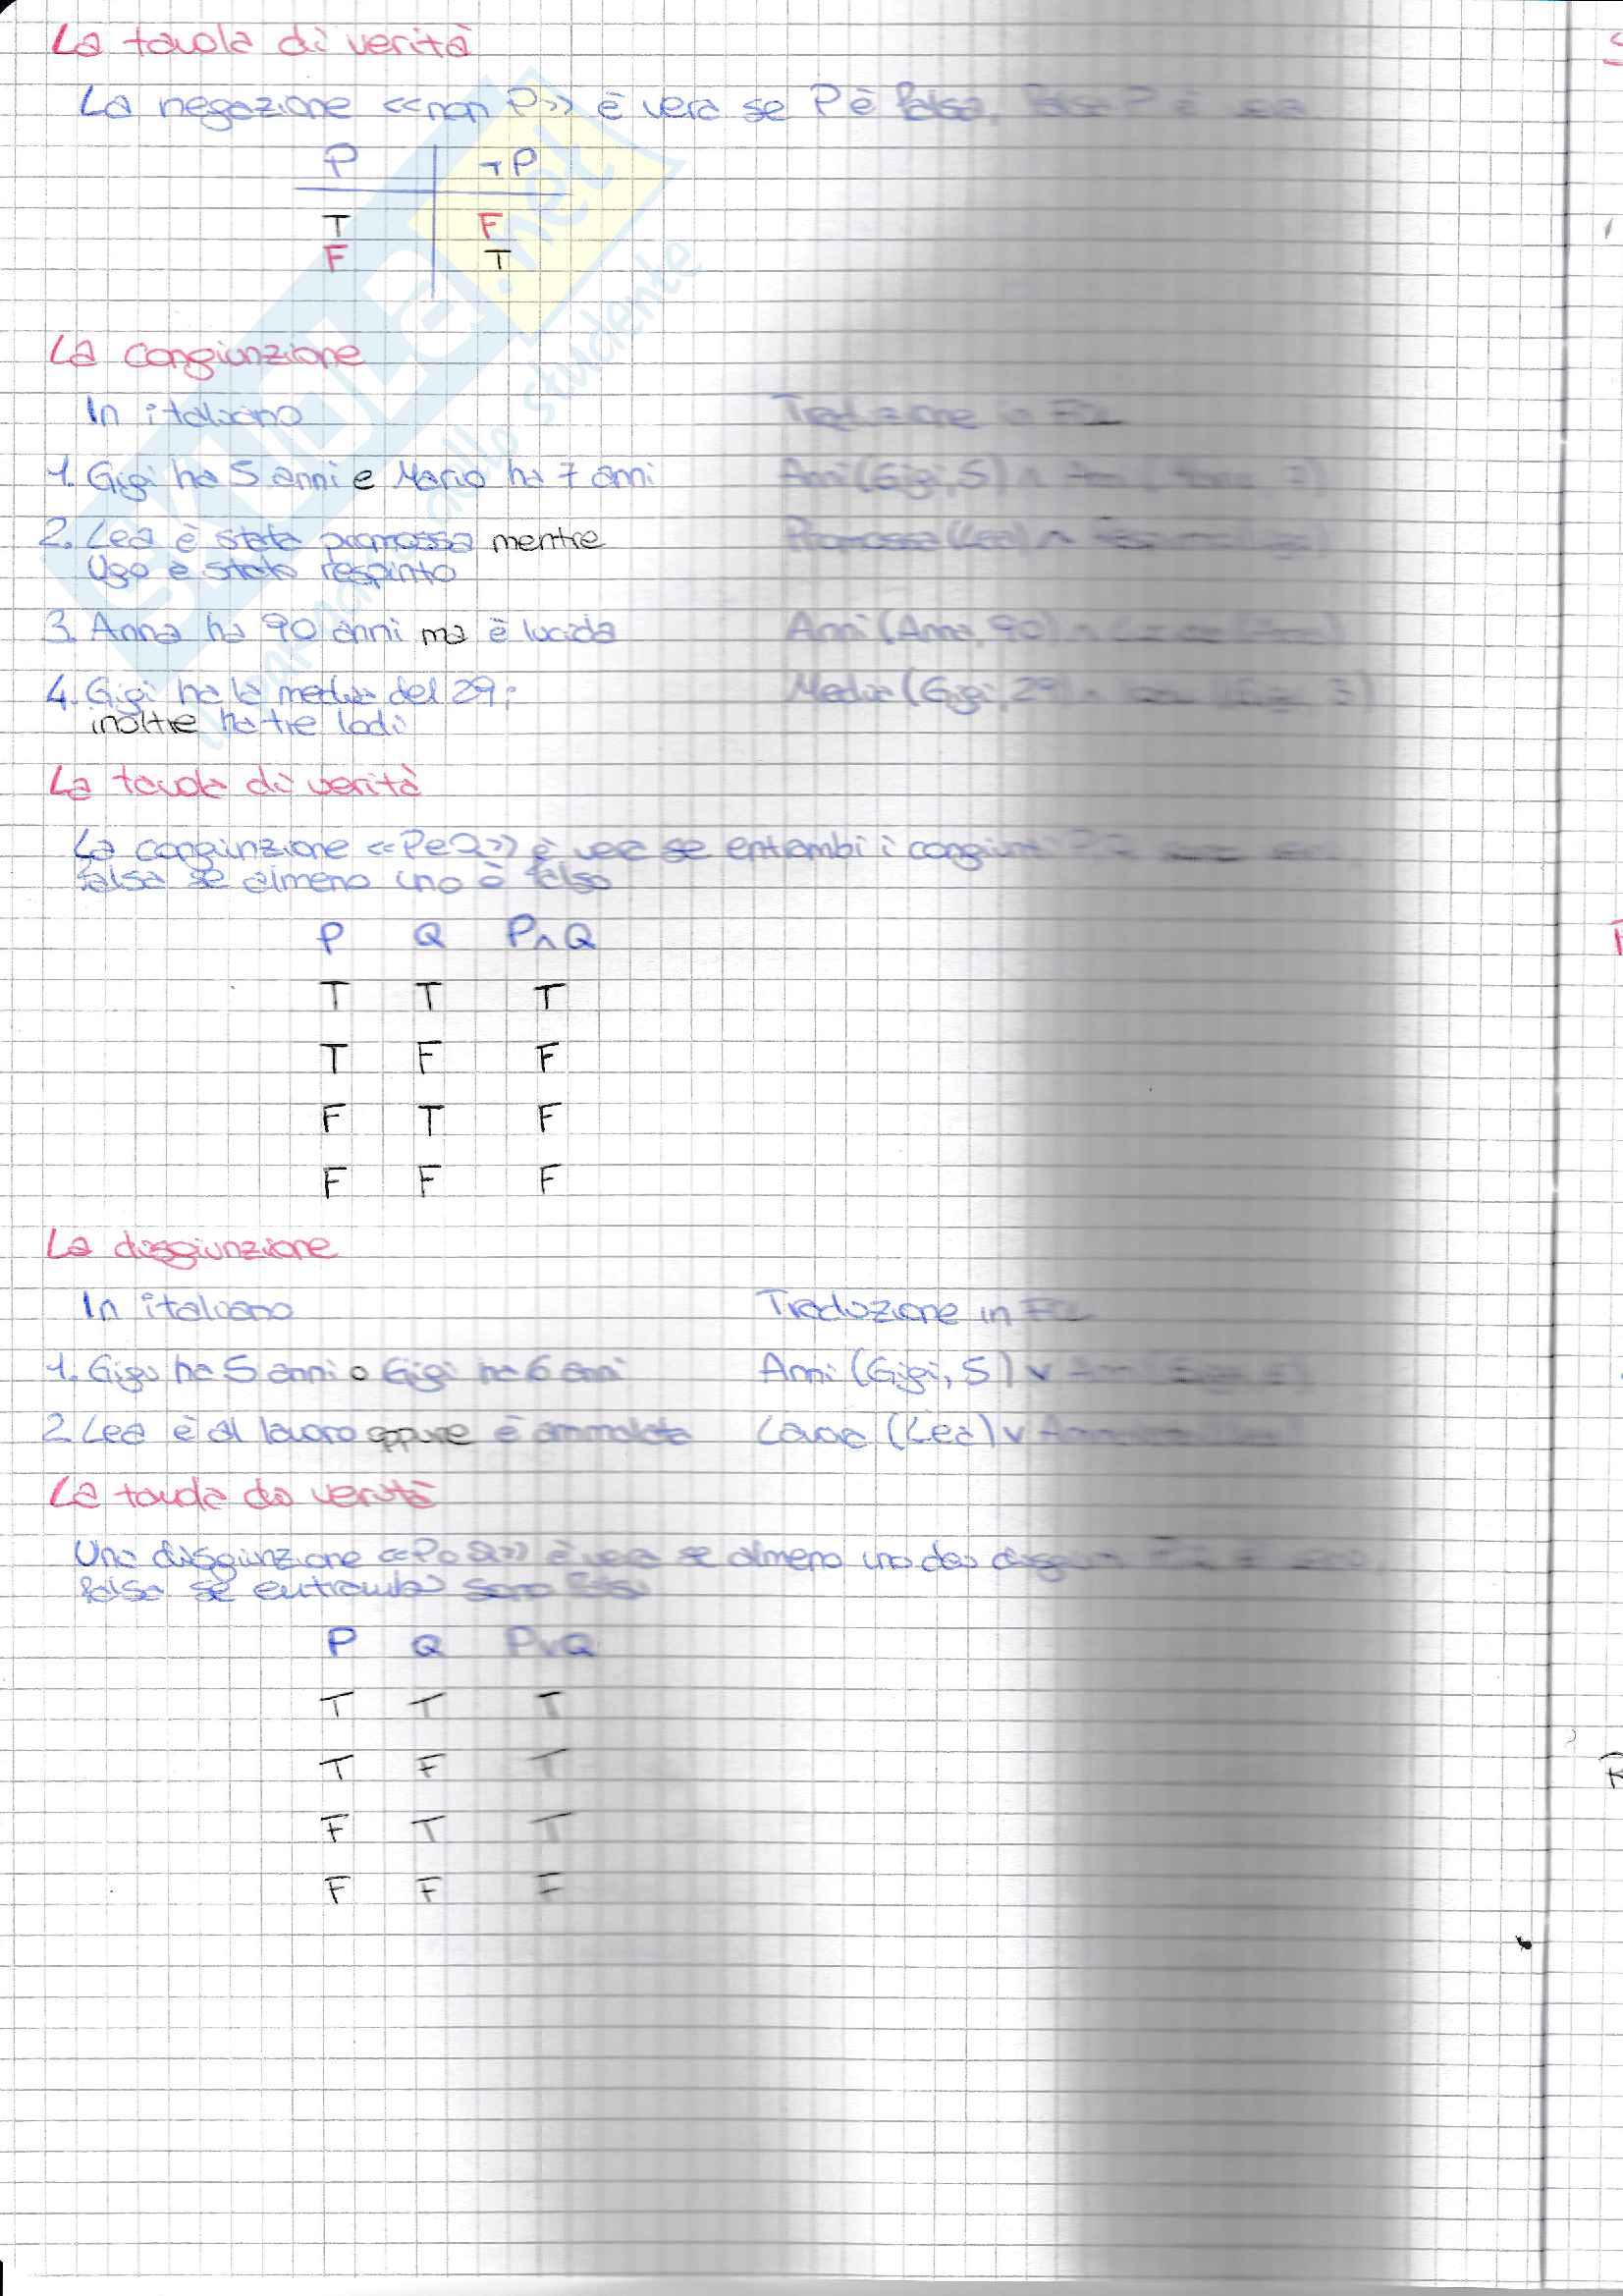 La tavola di verità
La negazione <<non P>> è vera se P è falsa,
P ¬P
T F
F T
La congiunzione
In italiano Traduzione
1. Gigi ha 5 anni e Mario ha 7 anni Anni (Gigi, 5) ∧
2. Lea è stata promossa mentre Promossa (Lea) ∧
Ugo è stato respinto
3. Anna ha 90 anni ma è lucida Anni (Anna, 90) ∧
4. Gigi ha la media del 29; Media (Gigi, 29)
inoltre ha tre lodi
La tavola di verità
La congiunzione <<P e Q>> è vera se entrambi i congiunti
falsa se almeno uno è falso
P Q P∧Q
T T T
T F F
F T F
F F F
La disgiunzione
In italiano Traduzione in FOL
1. Gigi ha 5 anni o Gigi ha 6 anni Anni (Gigi, 5) ∨
2. Lea è al lavoro oppure è ammalata Lavora (Lea) ∨
La tavola di verità
Una disgiunzione <<P o Q>> è vera se almeno uno dei
falsa se entrambi sono falsi
P Q P∨Q
T T T
T F T
F T T
F F F